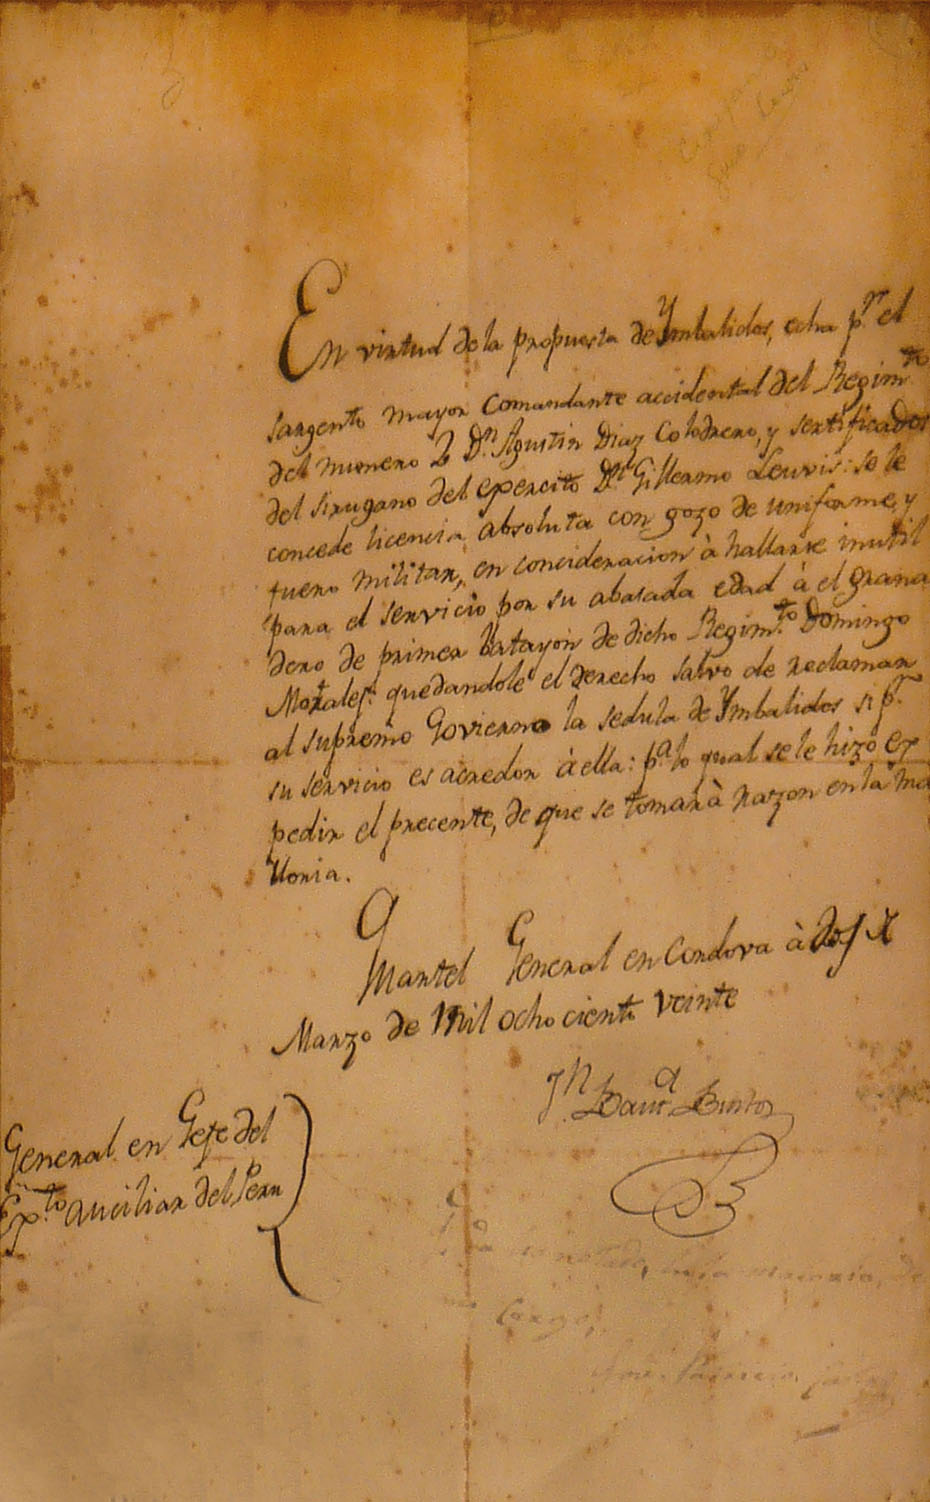 En virtud de la propuesta de Ymbalidos, echa p.r el
sargento mayor comandante accidental del Regim.to
del numero 2 D.n Agustin Diaz Colodrero, y sertificados
del sirugano del epercito D.n Gillermo Leuvis: se le
concede licencia absoluta con gozo de uniforme, y
fuero militar, en concideracion à hallarse inutil
para el servicio por su abasada edad à el grana
dero de primer batayon de dicho Regim.to Domingo
Morales: quedandole el derecho salvo de reclamar
al supremo Govierno la sedula de Ymbalidos si p.r
su servicio es acredor à ella: p.a lo qual se le hizo ex
pedir el precente, de que se tomarà razon en la ma
yoria.
Quartel General en Cordova à dos
Marzo de mil ocho ciento veinte
J.n Baut.a Bustos
General en Gefe del
Exp.to auciliar del Peru
notado, en la mayoria, de
cargo,